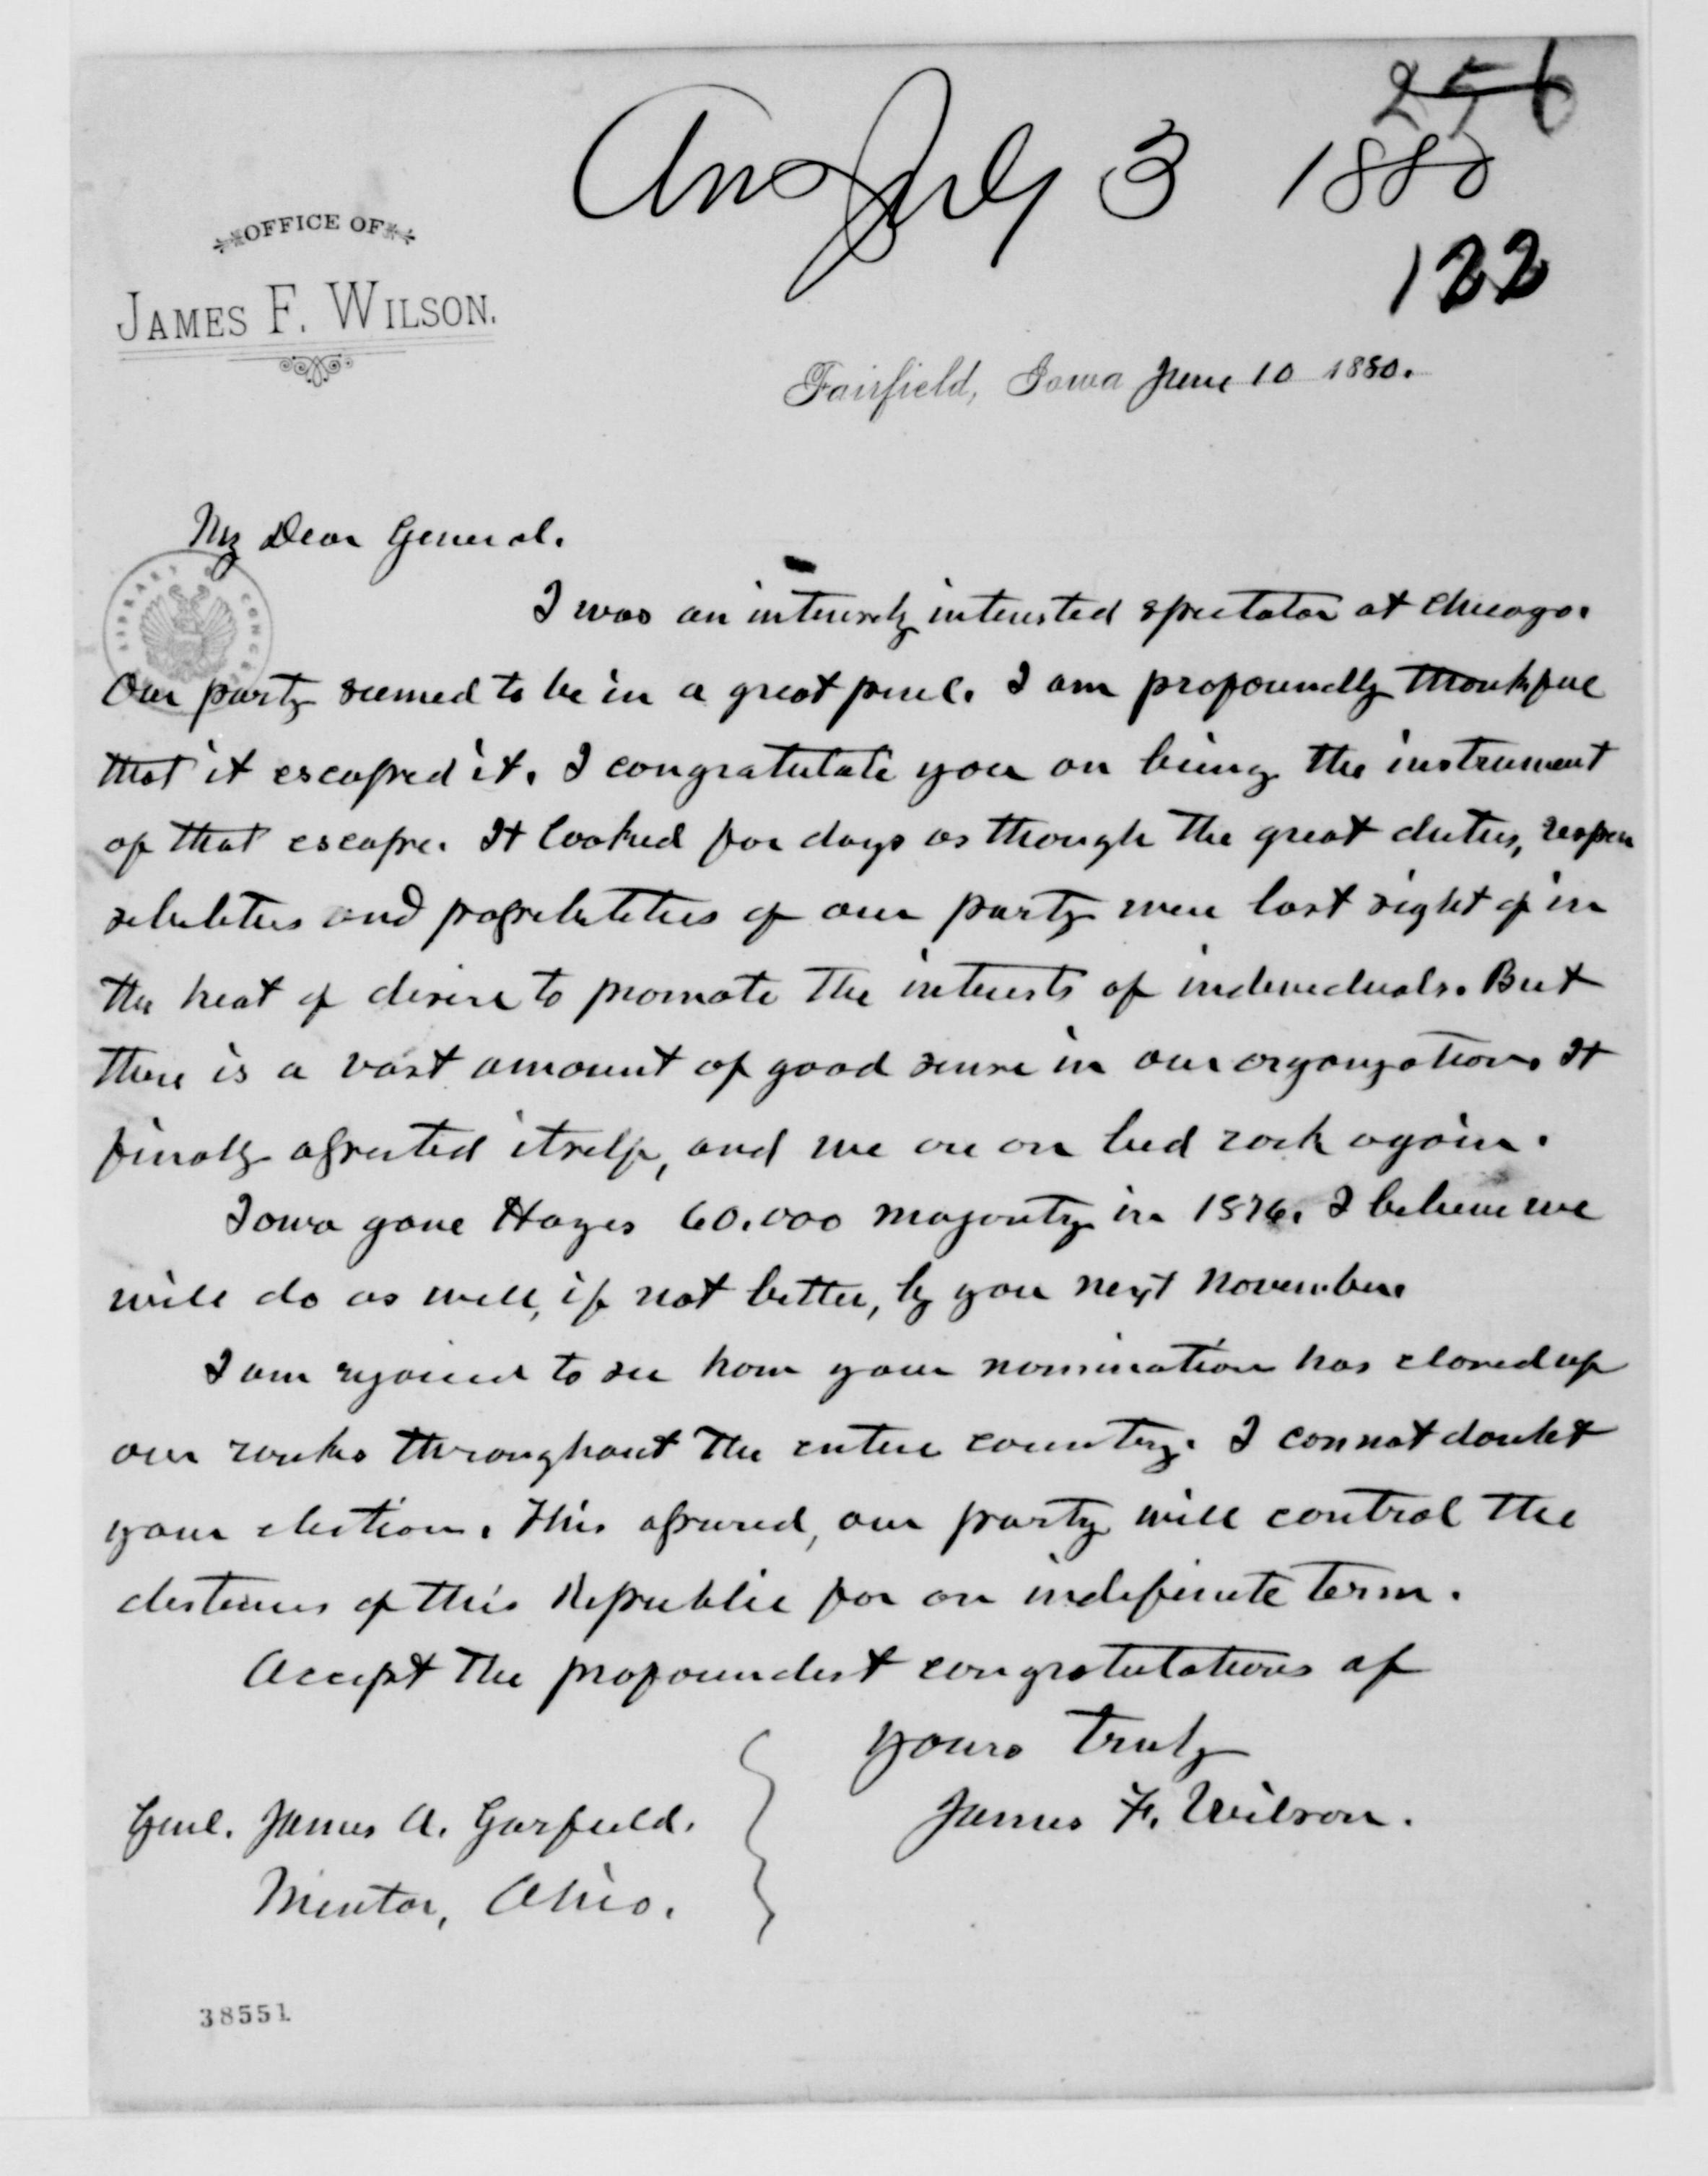 256
Ans July 3 1880
122
OFFICE OF
JAMES F. WILSON.
Fairfield, Iowa June 10 1880.
My Dear General.
I was an intensely interested spectator at Chicago.
Our party seemed to be in a great peril. I am profoundly thankful
that it escaped it. I congratulate you on being the instrument
of that escape. It looked for days as though the great duties, respon
sibilities and possibilities of our party were lost sight of in
the heat of desire to promote the interests of individuals. But
there is a vast amount of good sense in our organization. It
finally asserted itself, and we are on bed rock again.
Iowa gave Hayes 60.000 majority in 1876. I believe we
will do as well, if not better, by you next November.
I am rejoiced to see how your nomination has closed up
our ranks throughout the entire country. I cannot doubt
your election. This assured, our party will control the
destinies of this Republic for an indefinite term.
Accept the profoundest congratulations of
yours truly
James F. Wilson.
Genl. James A. Garfield.
Mentor, Ohio.
38551